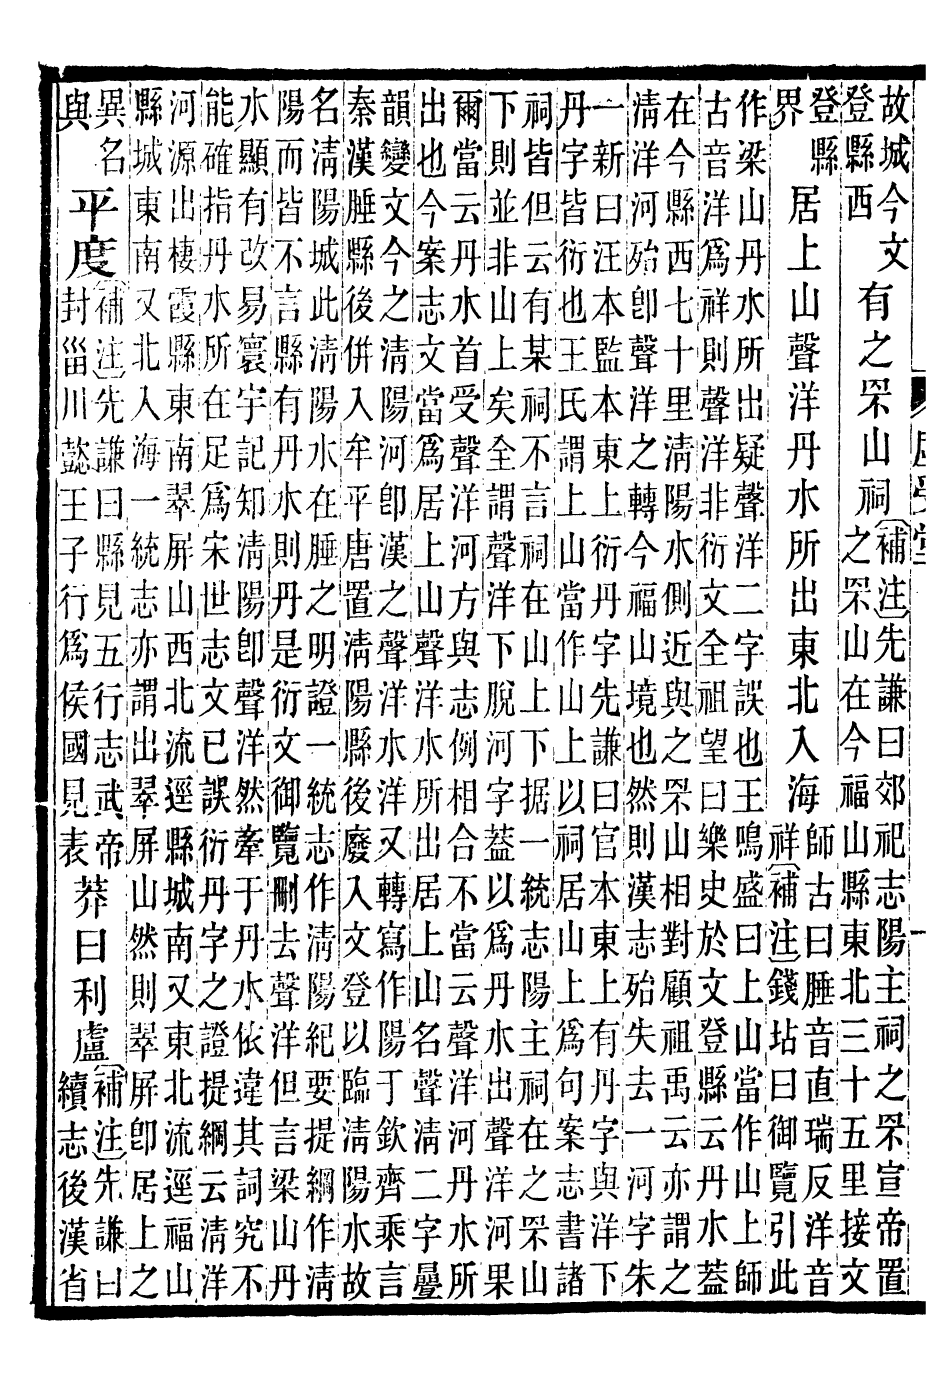 故城今文
登縣西
有之罘山祠
補注先謙曰郊祀志陽主祠之罘宣帝置
之罘山在今福山縣東北三十五里接文
登縣
界
居上山聲洋丹水所出東北入海
師古曰腄音直瑞反洋音
祥補注錢坫曰御覽引此
作梁山丹水所出疑聲洋二字誤也王鳴盛曰上山當作山上師
古音洋爲祥則聲洋非衍文全祖望曰樂史於文登縣云丹水蓋
在今縣西七十里清陽水側近與之罘山相對顧祖禹云亦謂之
清洋河殆卽聲洋之轉今福山境也然則漢志殆失去一河字朱
一新曰汪本監本東上衍丹字先謙曰官本東上有丹字與洋下
丹字皆衍也王氏謂上山當作山上以祠居山上爲句案志書諸
祠皆但云有某祠不言祠在山上下据一統志陽主祠在之罘山
下則並非山上矣全謂聲洋下脫河字蓋以爲丹水出聲洋河果
爾當云丹水首受聲洋河方與志例相合不當云聲洋河丹水所
出也今案志文當爲居上山聲洋水所出居上山名聲清二字曡
韻變文今之清陽河卽漢之聲洋水洋又轉寫作陽于欽齊乘言
秦漢腄縣後併入牟平唐置清陽縣後廢入文登以臨清陽水故
名清陽城此清陽水在腄之明證一統志作清陽紀要提綱作清
陽而皆不言縣有丹水則丹是衍文御覽刪去聲洋但言梁山丹
水顯有改易寰宇記知清陽卽聲洋然牽于丹水依違其詞究不
能確指丹水所在足爲宋世志文已誤衍丹字之證提綱云清洋
河源出棲霞縣東南翠屏山西北流逕縣城南又東北流逕福山
縣城東南又北入海一統志亦謂出翠屏山然則翠屏卽居上之
異名
與
平度
補注先謙曰縣見五行志武帝
封菑川懿王子行爲侯國見表
莽曰利盧
補注先謙曰
續志後漢省